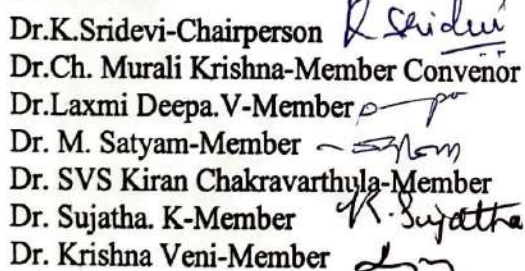 Dr.K.Sridevi-Chairperson K Sridevi
Dr.Ch. Murali Krishna-Member Convenor
Dr.Laxmi Deepa.V-Member
Dr. M. Satyam-Member
Dr. SVS Kiran Chakravarthula-Member
Dr. Sujatha. K-Member K. Sujatha
Dr. Krishna Veni-Member